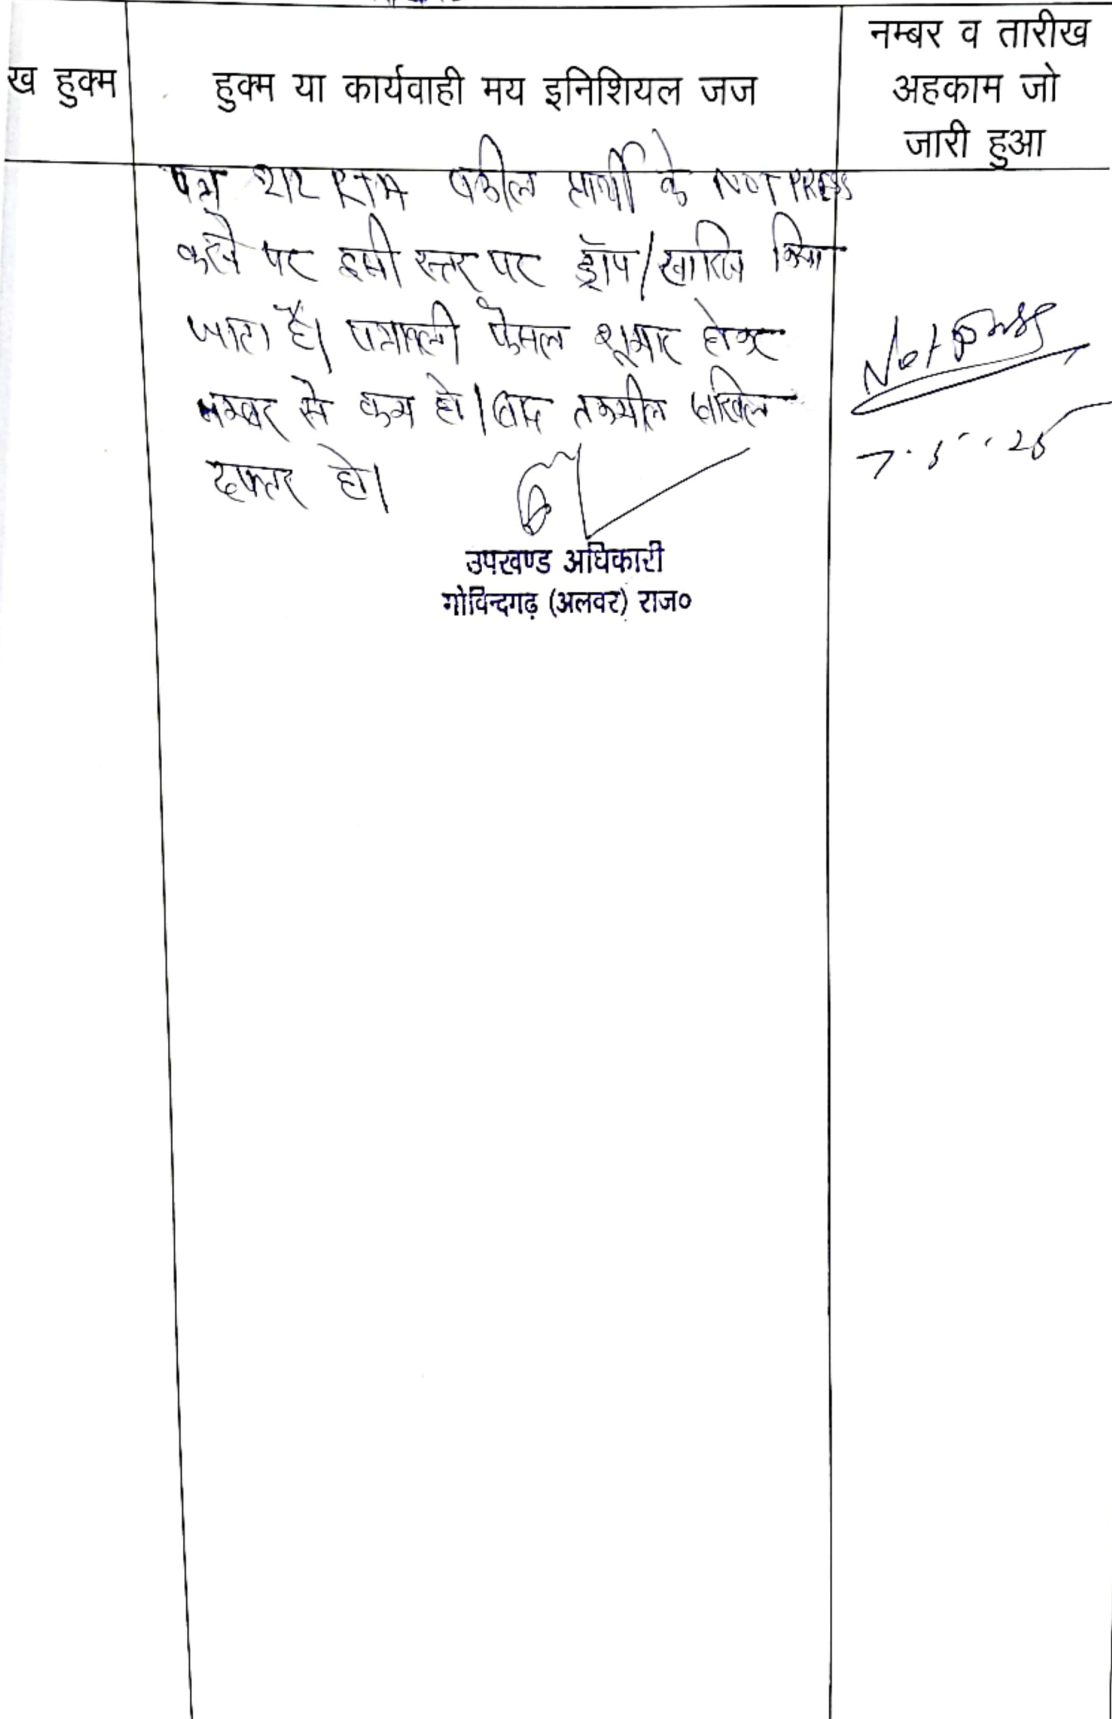 ख हुक्म
हुक्म या कार्यवाही मय इनिशियल जज
नम्बर व तारीख
अहकाम जो
जारी हुआ
पत्र 212 RTA वकील प्रार्थी के NOT PRESS
करने पर इसी स्तर पर ड्रॉप/खारिज किया
जाता है। पत्रावली फैसल शूमार होकर
नम्बर से कम हो। बाद तकमील दाखिल
दफ्तर हो।
Not press
उपखण्ड अधिकारी
गोविन्दगढ़ (अलवर) राज०